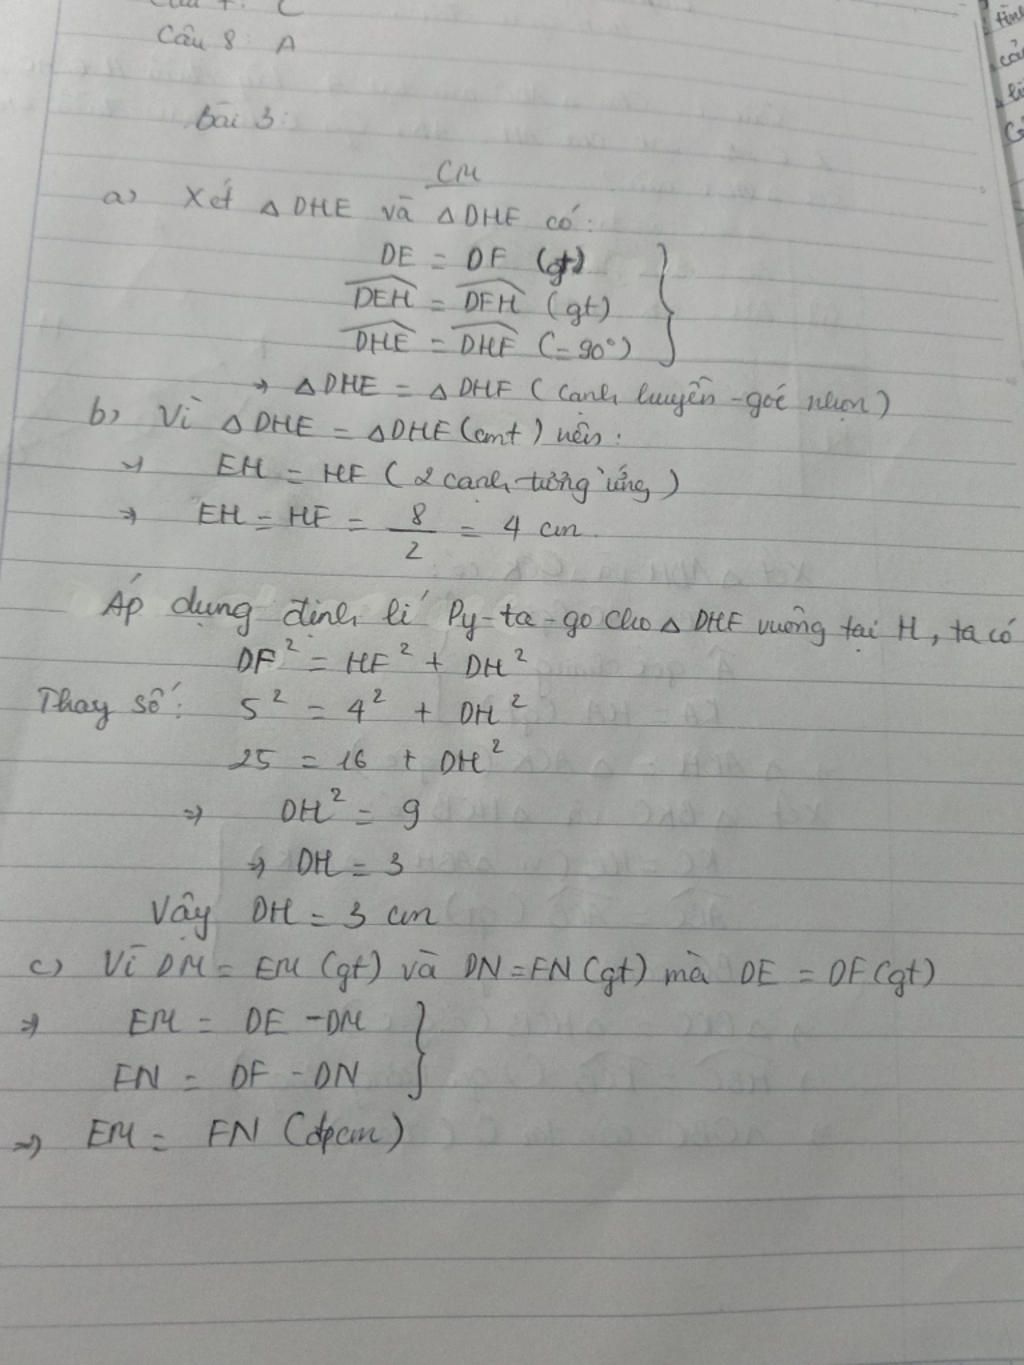 Câu 7: C
Câu 8: A
Bài 3:
CM
a) Xét △DHE và △DHF có:
DE = DF (gt)
DEH = DFH (gt)
DHE = DHF (= 90°)
⇒ △DHE = △DHF (cạnh huyền - góc nhọn)
b) Vì △DHE = △DHF (cmt) nên:
⇒ EH = HF (2 cạnh tương ứng)
⇒ EH = HF = 8/2 = 4 cm.
Áp dụng định lí Py-ta-go cho △DHF vuông tại H, ta có
DF² = HF² + DH²
Thay số: 5² = 4² + DH²
25 = 16 + DH²
⇒ DH² = 9
⇒ DH = 3
Vậy DH = 3 cm
c) Vì DM = EM (gt) và DN = FN (gt) mà DE = DF (gt)
⇒ EM = DE - DM
FN = DF - DN
⇒ EM = FN (đpcm)